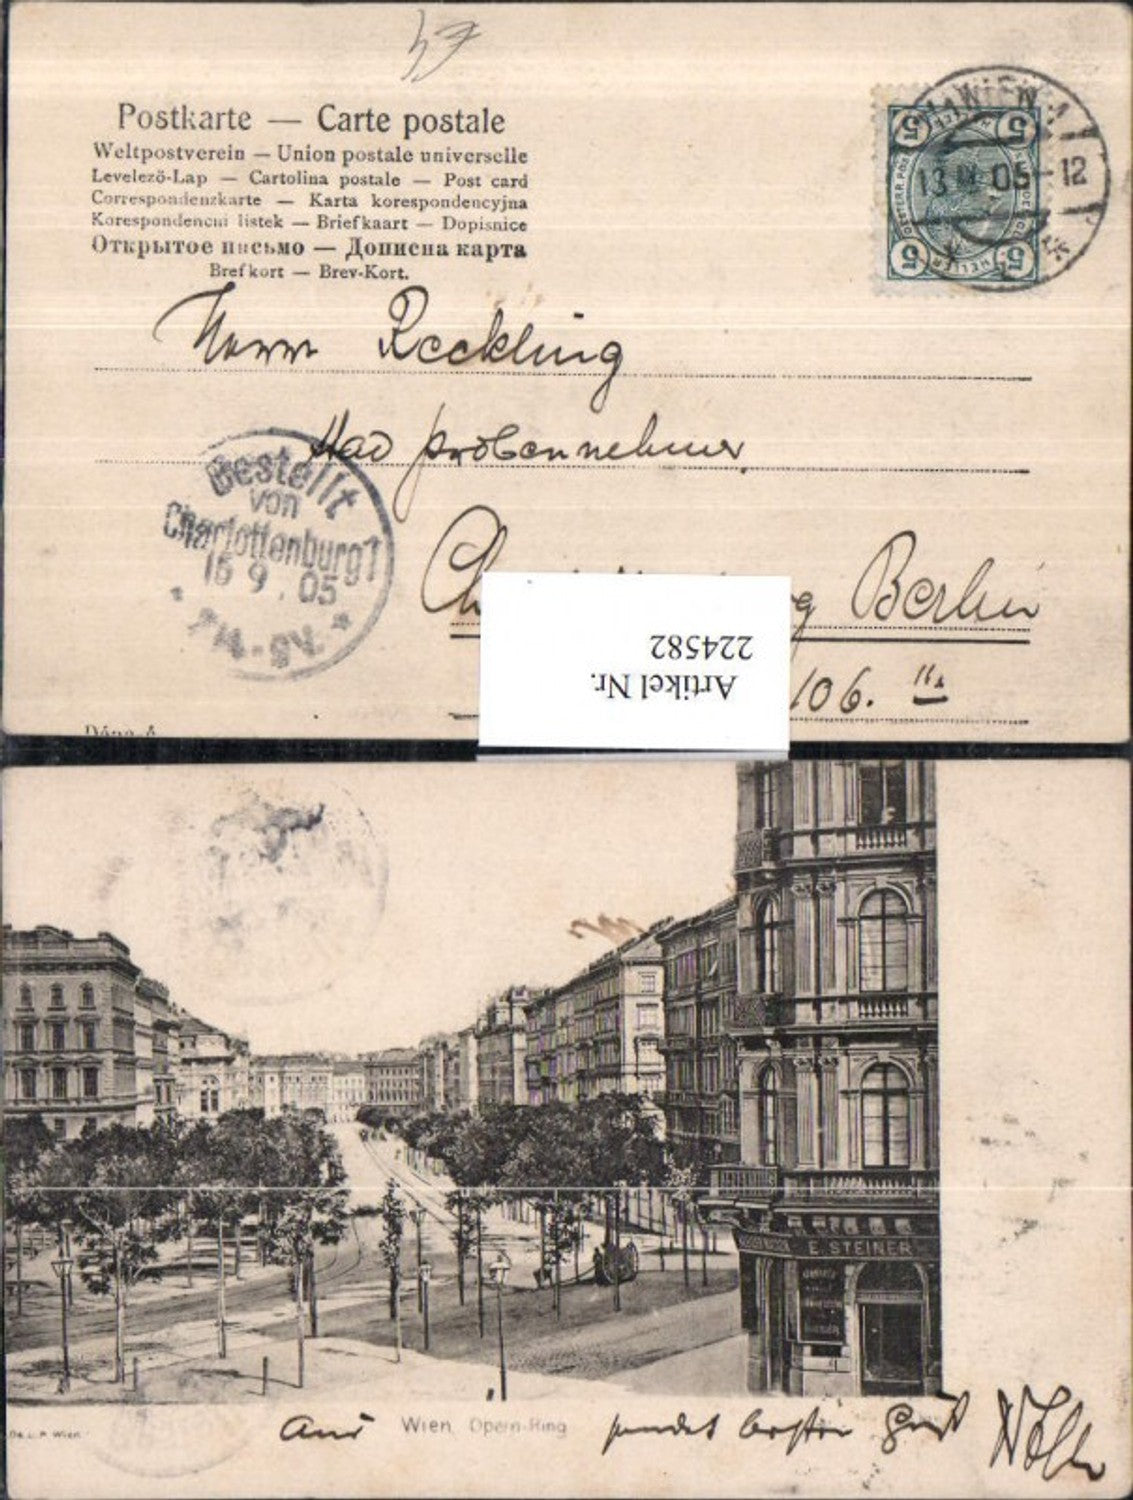 Postkarte — Carte postale
Weltpostverein — Union postale universelle
Levelező-Lap — Cartolina postale — Post card
Correspondenzkarte — Karta korespondencyjna
Korespondencni listek — Briefkaart — Dopisnice
Открытое письмо — Дописна карта
Brefkort — Brev-Kort.
WIEN 1
13 05-12
5 5
5 5
HELLER
Herrn Reckling
Bestellt
von
Charlottenburg 1
15 9. 05
Berlin
106. III
Artikel Nr.
224582
E. STEINER
Aus Wien, Opern-Ring sendet besten Gruß